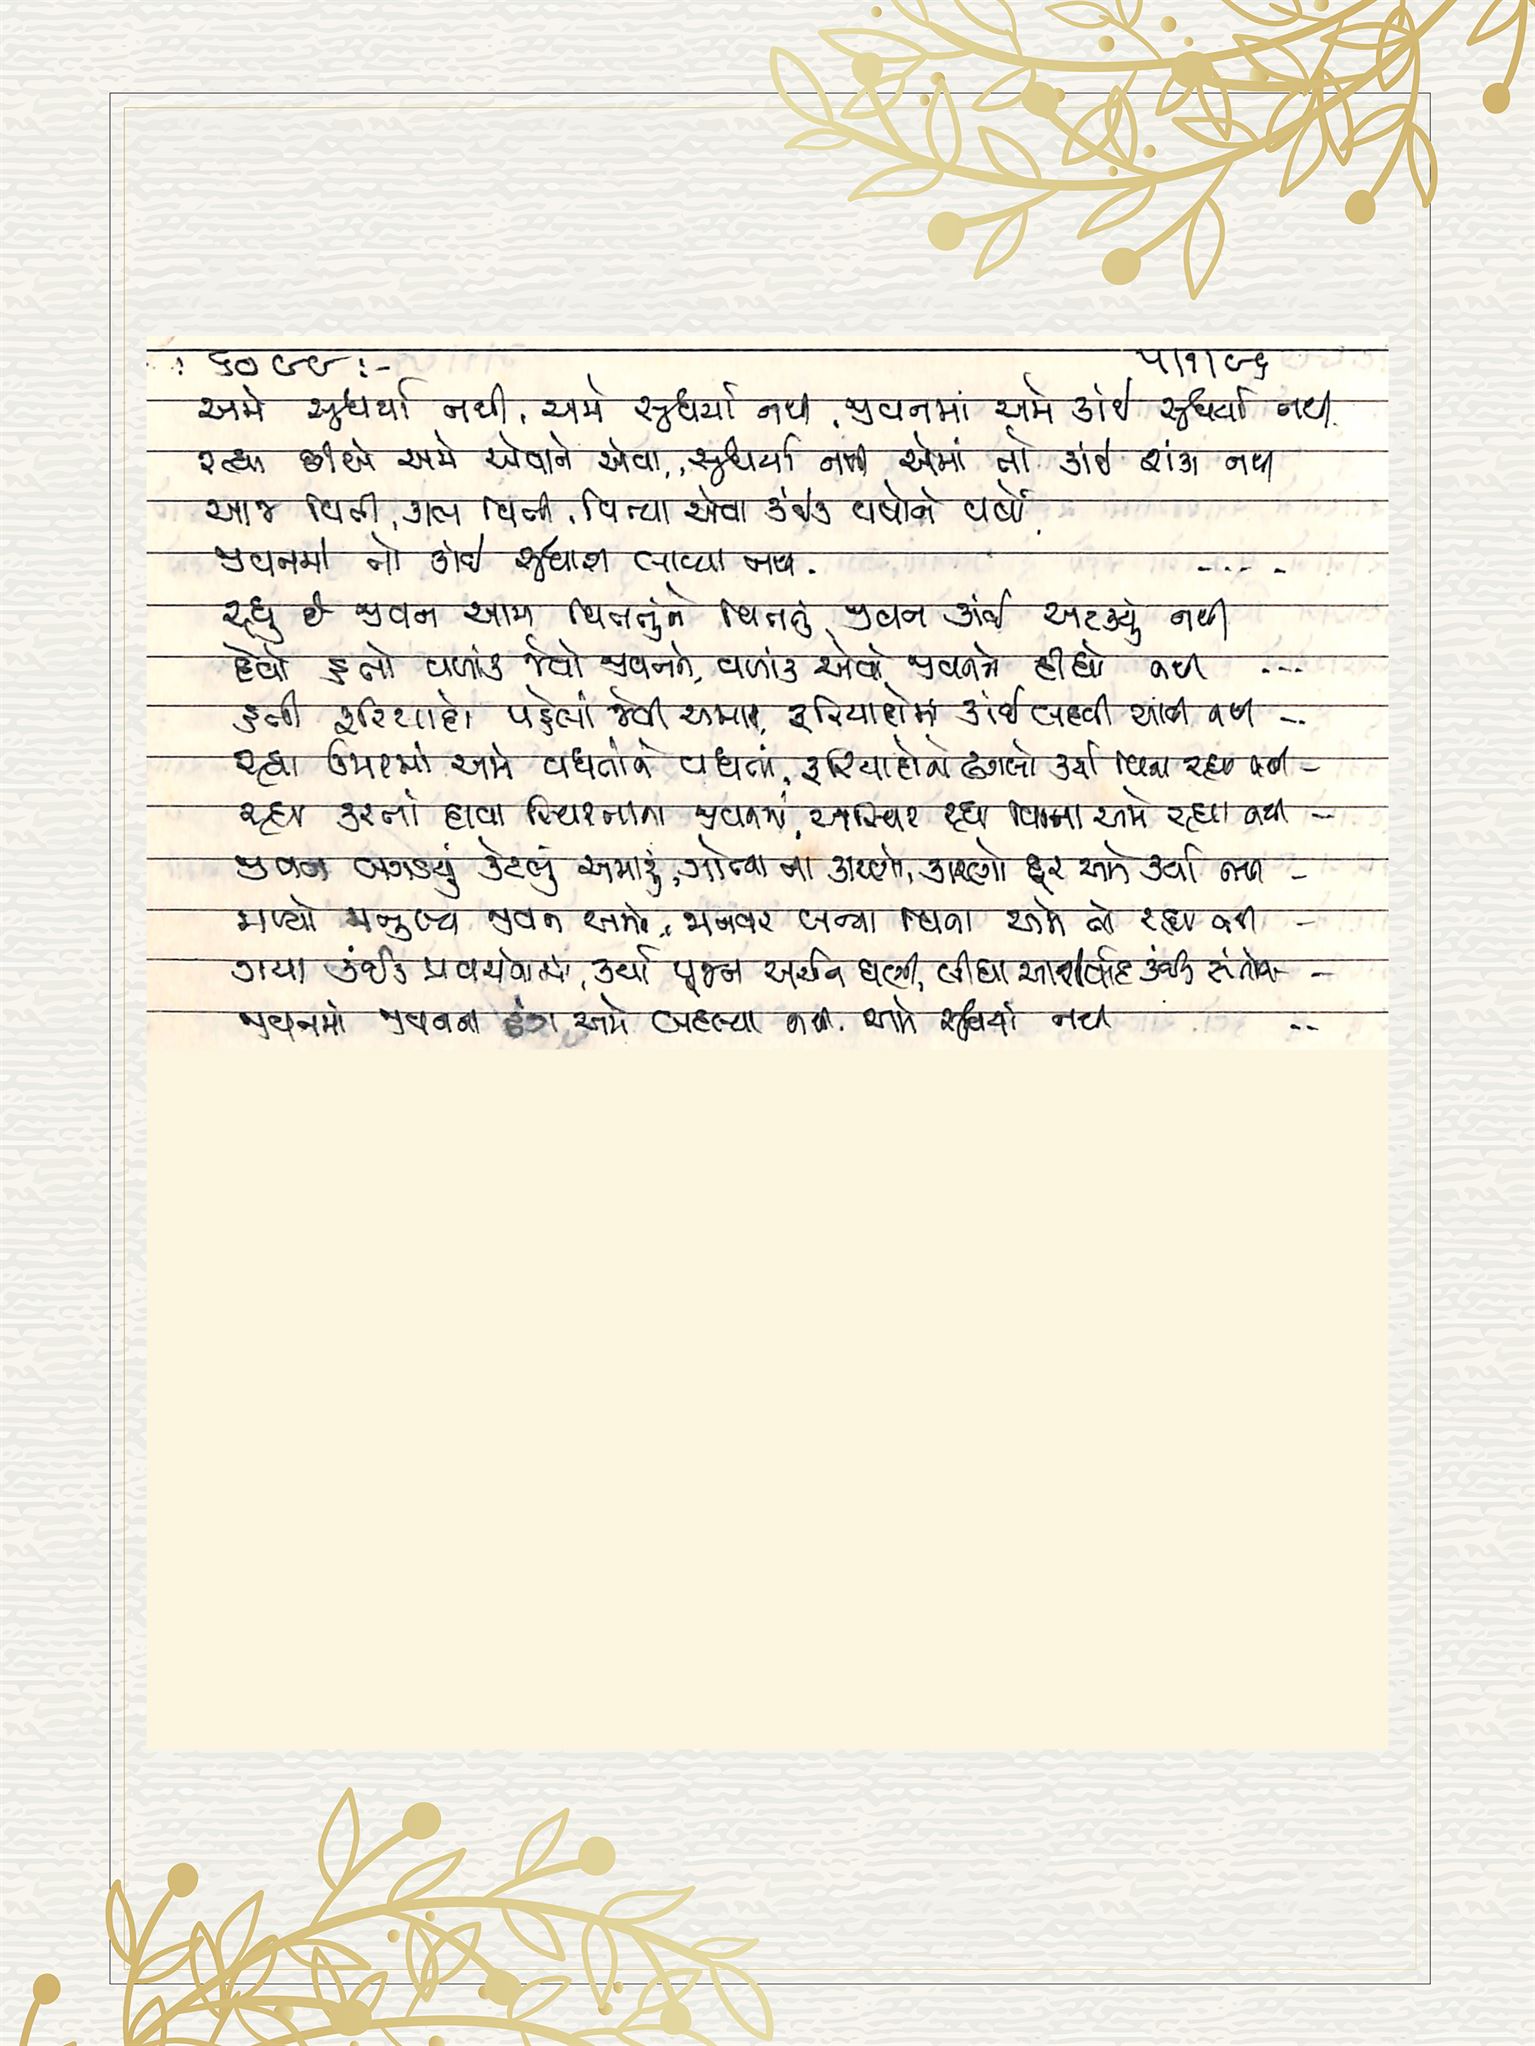 : ૬૦૯૯ :- ૫/૧/૯૬
અમે સુધર્યા નથી, અમે સુધર્યા નથી, જીવનમાં અમે કાંઈ સુધર્યા નથી
રહ્યા છીએ અમે એવાને એવા, સુધર્યા નથી એમાં તો કાંઈ શંકા નથી
આજ વિતી, કાલ વિતી, વિત્યા એવા કંઈક વર્ષોને વર્ષો
જીવનમાં તો કાંઈ સુધારા લાવ્યા નથી. ....
રહ્યું છે જીવન આમ વિતતુંને વિતતું, જીવન કાંઈ અટક્યું નથી
દેવો હતો વળાંક જેવો જીવનને, વળાંક એવો જીવનને દીધો નથી ...
હતી ફરિયાદો પહેલાં જેવી અમારી, ફરિયાદોમાં કાંઈ બદલી આવી નથી --
રહ્યા ઉમરમાં અમે વધતાંને વધતાં, ફરિયાદોનો ઢગલો કર્યા વિના રહ્યા નથી -
રહ્યા કરતાં દાવા સ્થિરતાના જીવનમાં, અસ્થિર રહ્યા વિના અમે રહ્યા નથી -
જીવન બગડયું કેટલું અમારું, ગોત્યા ના કારણો, કારણો દૂર અમે કર્યા નથી -
મળ્યો મનુષ્ય જીવન અમને, જાનવર બન્યા વિના અમે તો રહ્યા નથી -
ગયા કંઈક પ્રવચનોમાં, કર્યા પૂજન અર્ચન ઘણાં, લીધા આશીર્વાદ કંઈક સંતોના -
જીવનમાં જીવનના ઢંગ અમે બદલ્યા નથી. અમે સુધર્યા નથી --